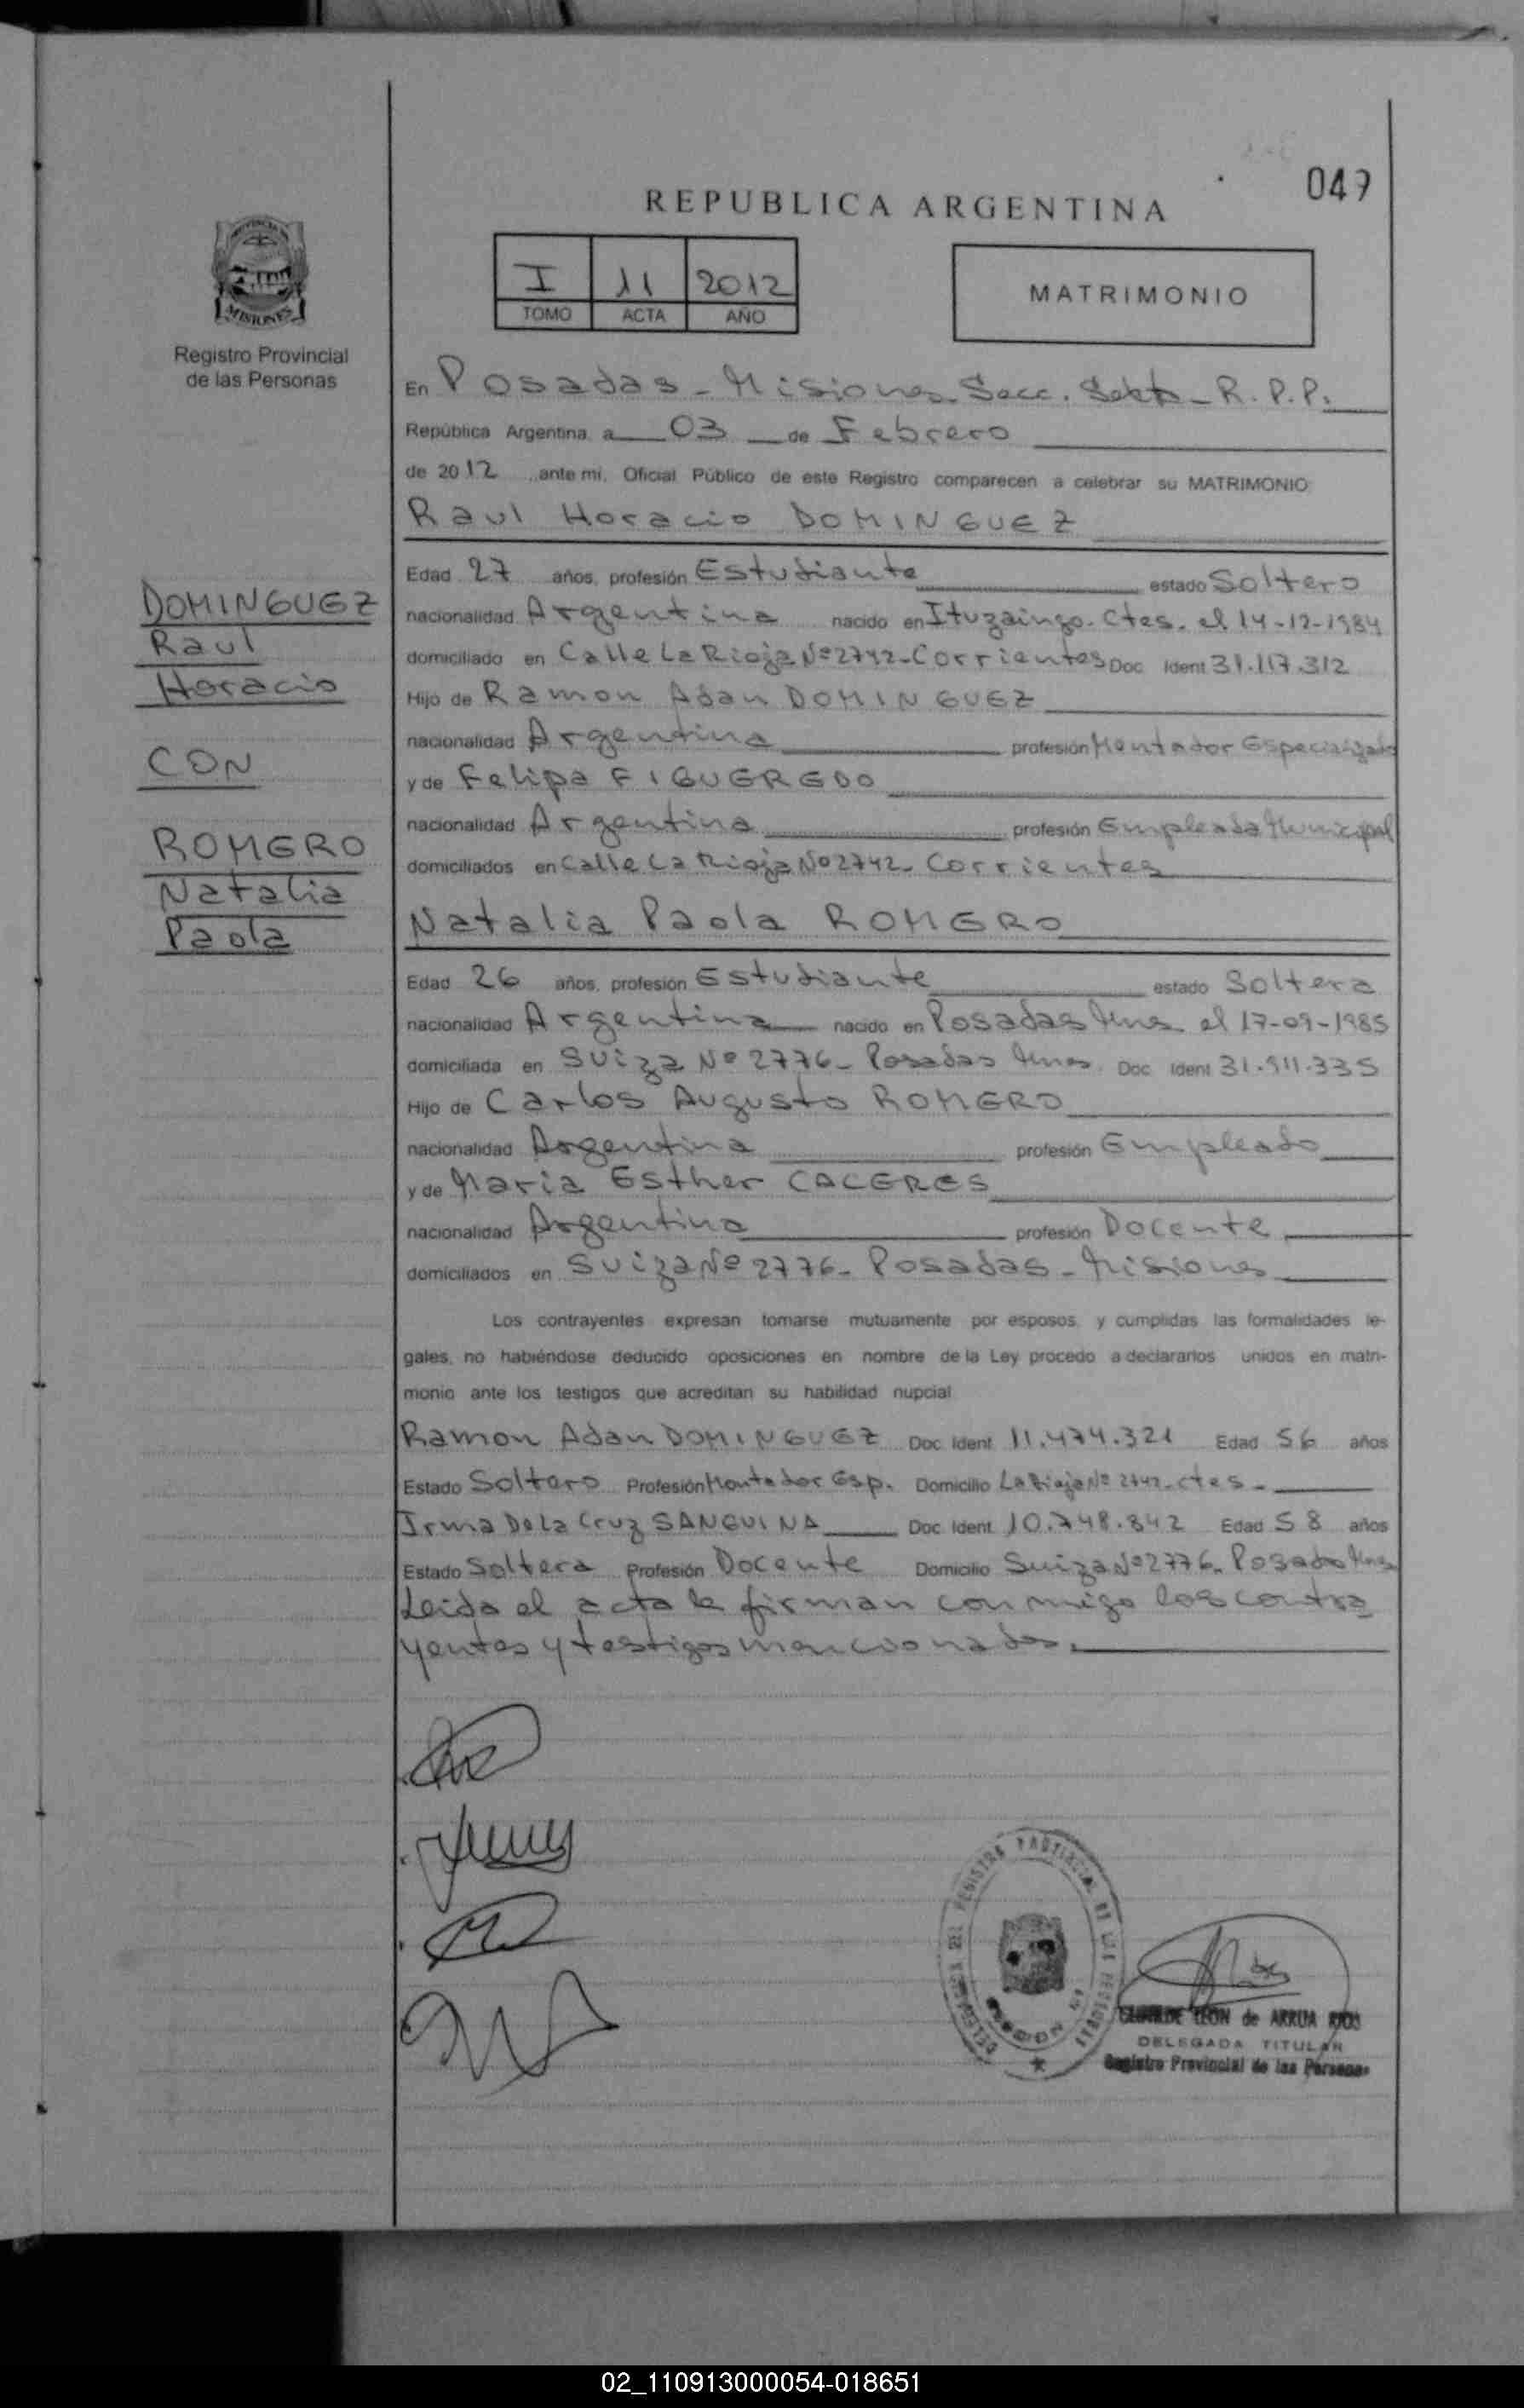 049
REPUBLICA ARGENTINA
I 11 2012
TOMO ACTA AÑO
MATRIMONIO
MISIONES
Registro Provincial
de las Personas
En Posadas - Misiones. Secc. Sexta - R.P.P.
República Argentina, a 03 de Febrero
de 2012 ante mi, Oficial Público de este Registro comparecen a celebrar su MATRIMONIO:
Raul Horacio DOMINGUEZ
Edad 27 años, profesión Estudiante estado Soltero
nacionalidad Argentina nacido en Ituzaingo. Ctes. el 14-12-1984
domiciliado en Calle La Rioja Nº 2742 - Corrientes Doc Ident 31.117.312
Hijo de Ramon Adan DOMINGUEZ
nacionalidad Argentina profesión Montador Especializado
y de Felipa FIGUEREDO
nacionalidad Argentina profesión Empleada Municipal
domiciliados en Calle La Rioja Nº 2742 - Corrientes
Natalia Paola ROMERO
Edad 26 años, profesión Estudiante estado Soltera
nacionalidad Argentina nacido en Posadas Mnes el 17-09-1985
domiciliada en Suiza Nº 2776 - Posadas Mnes. Doc Ident 31.911.335
Hijo de Carlos Augusto ROMERO
nacionalidad Argentina profesión Empleado
y de Maria Esther CACERES
nacionalidad Argentina profesión Docente
domiciliados en Suiza Nº 2776 - Posadas - Misiones
Los contrayentes expresan tomarse mutuamente por esposos, y cumplidas las formalidades le-
gales, no habiéndose deducido oposiciones en nombre de la Ley procedo a declararlos unidos en matri-
monio ante los testigos que acreditan su habilidad nupcial
Ramon Adan DOMINGUEZ Doc Ident 11.474.321 Edad 56 años
Estado Soltero Profesión Montador Esp. Domicilio La Rioja Nº 2742 - ctes -
Irma De la Cruz SANGUINA Doc Ident 10.748.842 Edad 58 años
Estado Soltera Profesión Docente Domicilio Suiza Nº 2776 - Posadas Mnes
Leida el acta la firman conmigo los contra
yentes y testigos mencionados.
DOMINGUEZ
Raul
Horacio
CON
ROMERO
Natalia
Paola
DELEGACION DEL REGISTRO PROVINCIAL DE LAS PERSONAS
LEON de ARRUA
DELEGADA TITULAR
Registro Provincial de las Personas
02_110913000054-018651